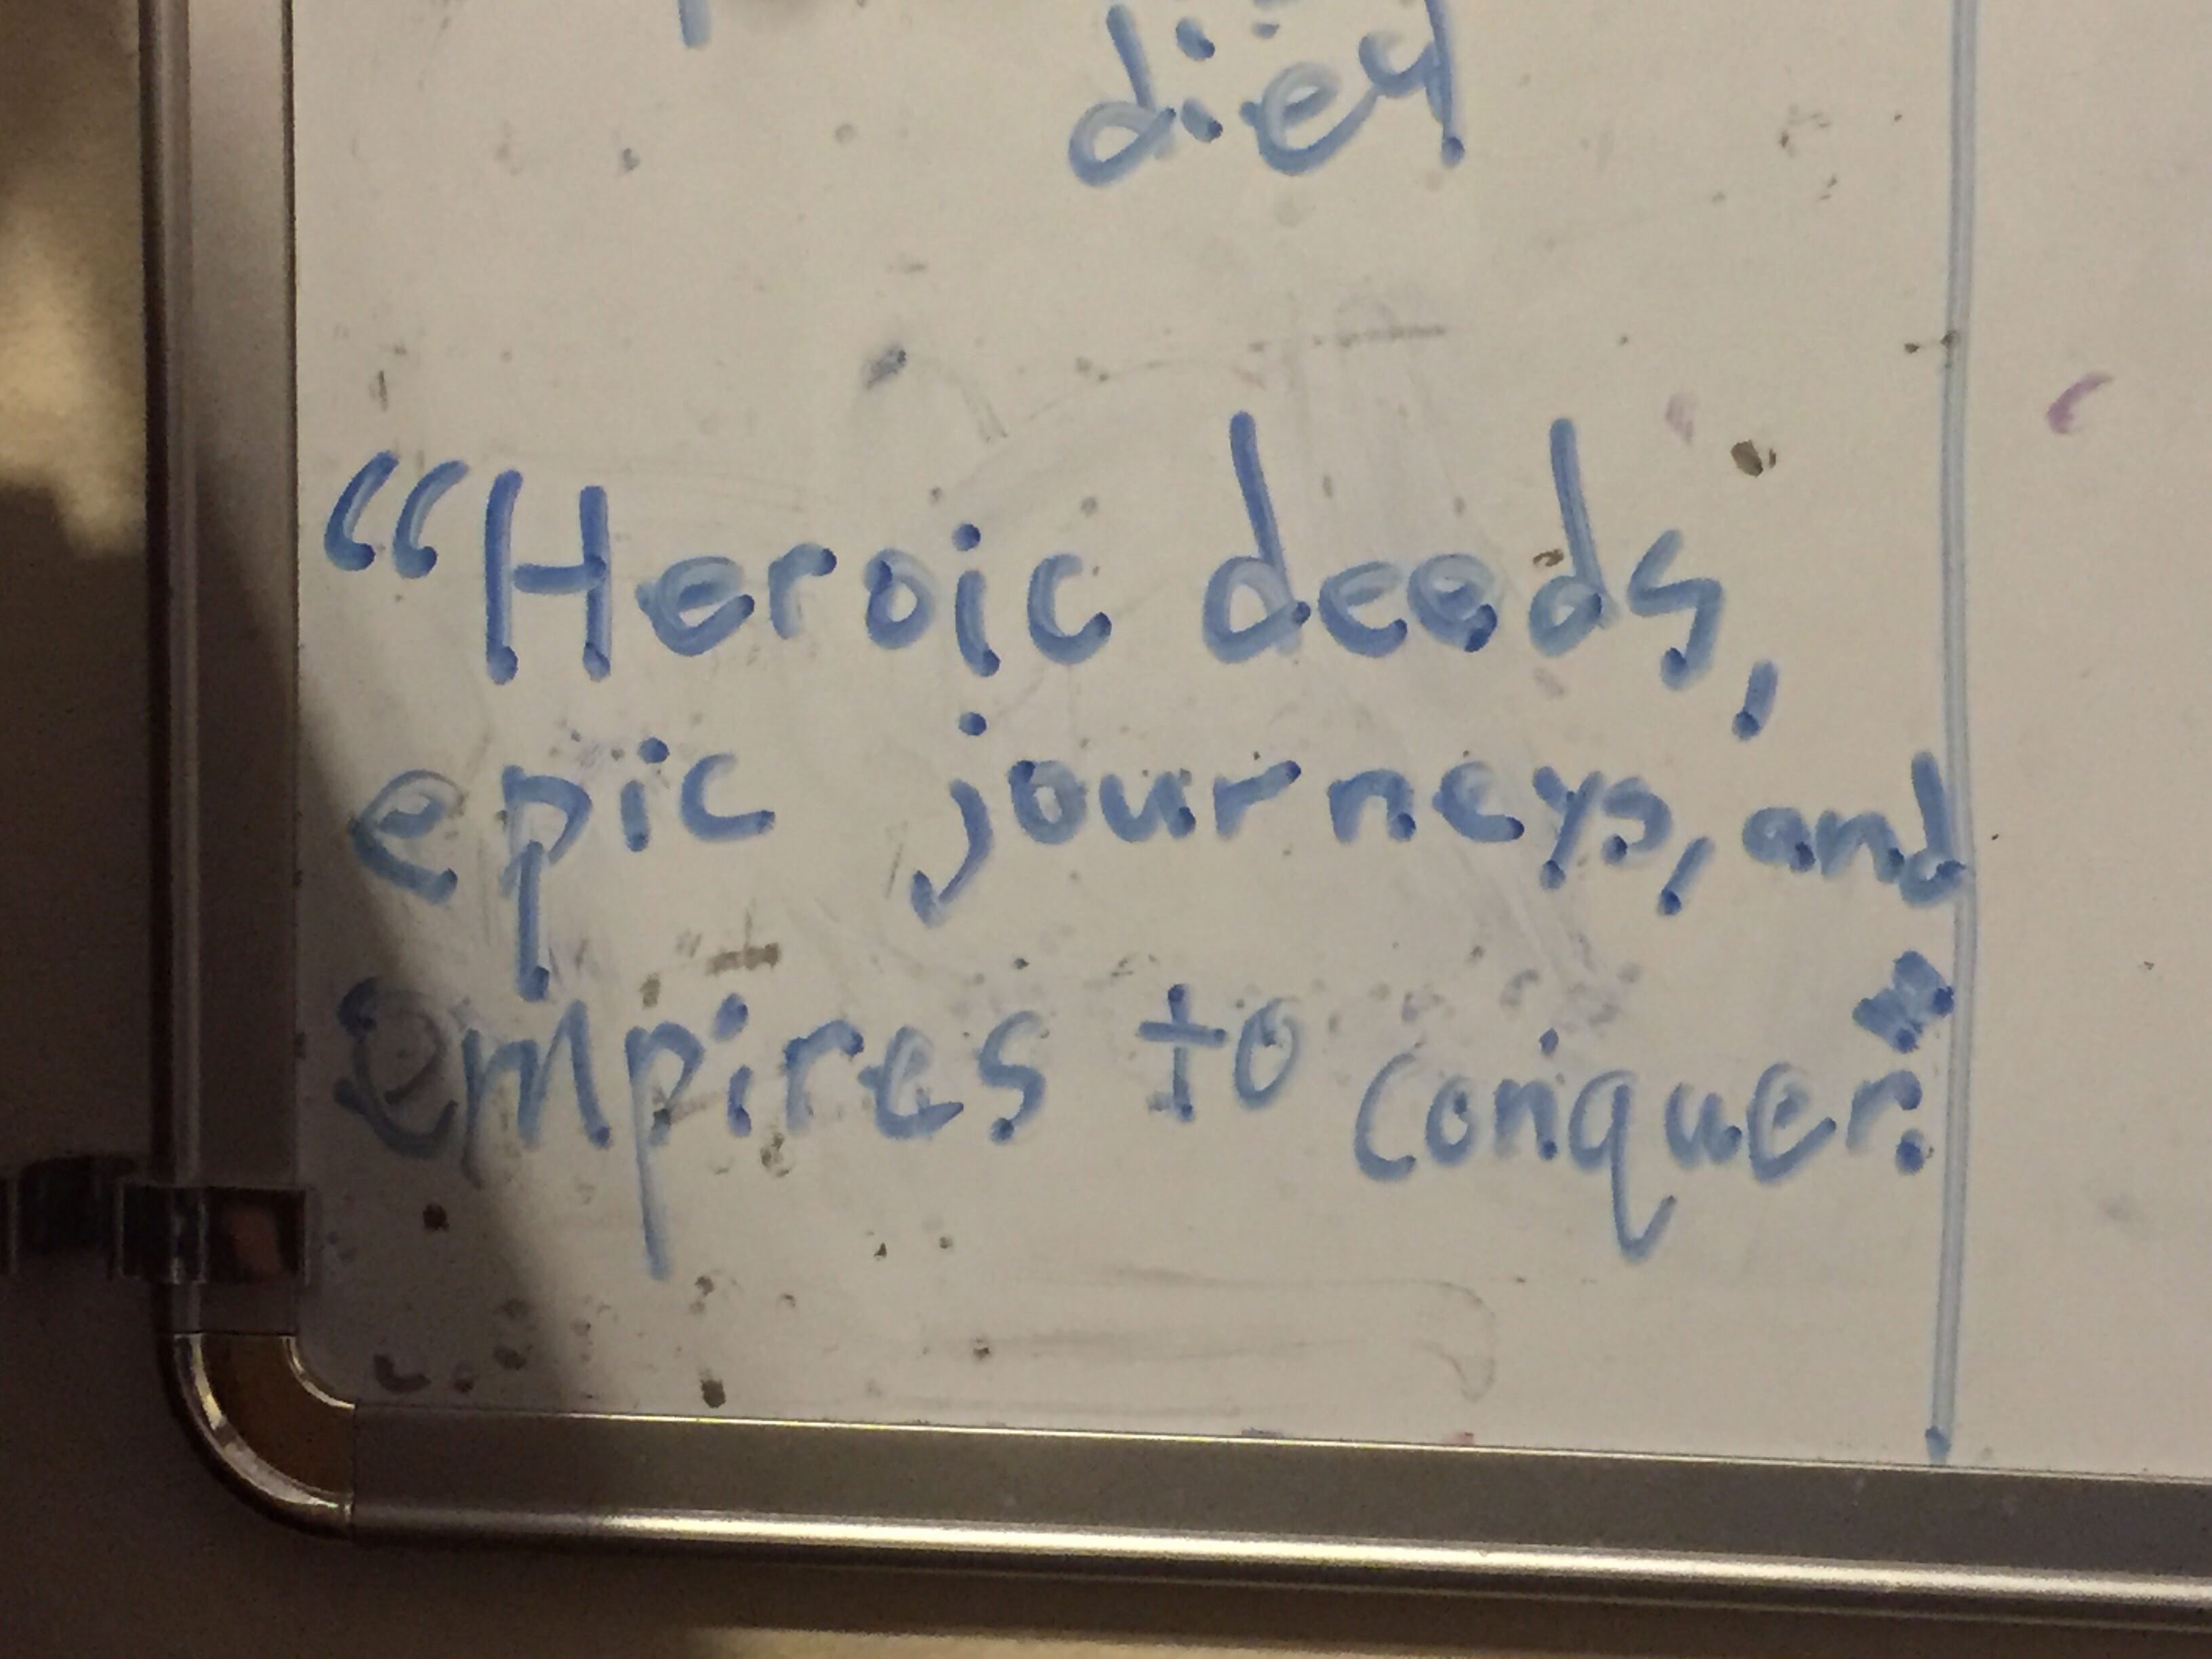 died
“Heroic deeds,
epic journeys, and
empires to conquer.”